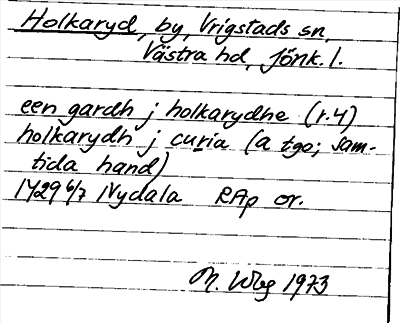 Holkaryd, by, Vrigstads sn,
Västra hd, Jönk. l.
een gardh j holkarydhe (r. 4)
holkarydh j curia (a tgo; sam-
tida hand)
1429 6/7 Nydala RAp or.
M. Wbg 1973